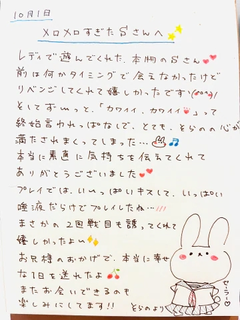 10月1日
メロメロすぎたSさんへ
レディで遊んでくれた、本物のSさん
前は何かタイミングで会えなかったけど
リベンジしてくれて嬉しかったです
そしてずーっと、「カワイイ、カワイイ」って
終始言われっぱなしで、とても、そらのの心が
満たされまくってしまった…
本当に素直に気持ちを伝えてくれて
ありがとうございました
プレイでは、いーっぱいキスして、いっぱい
唾液だらけでプレイしたね…!!!
まさかの2回戦目も誘ってくれて
嬉しかったよぃ
お兄様のおかげで、本当に幸せ
な1日を送れたよ
またお会いできるのも
楽しみにしてます!!
そらのより